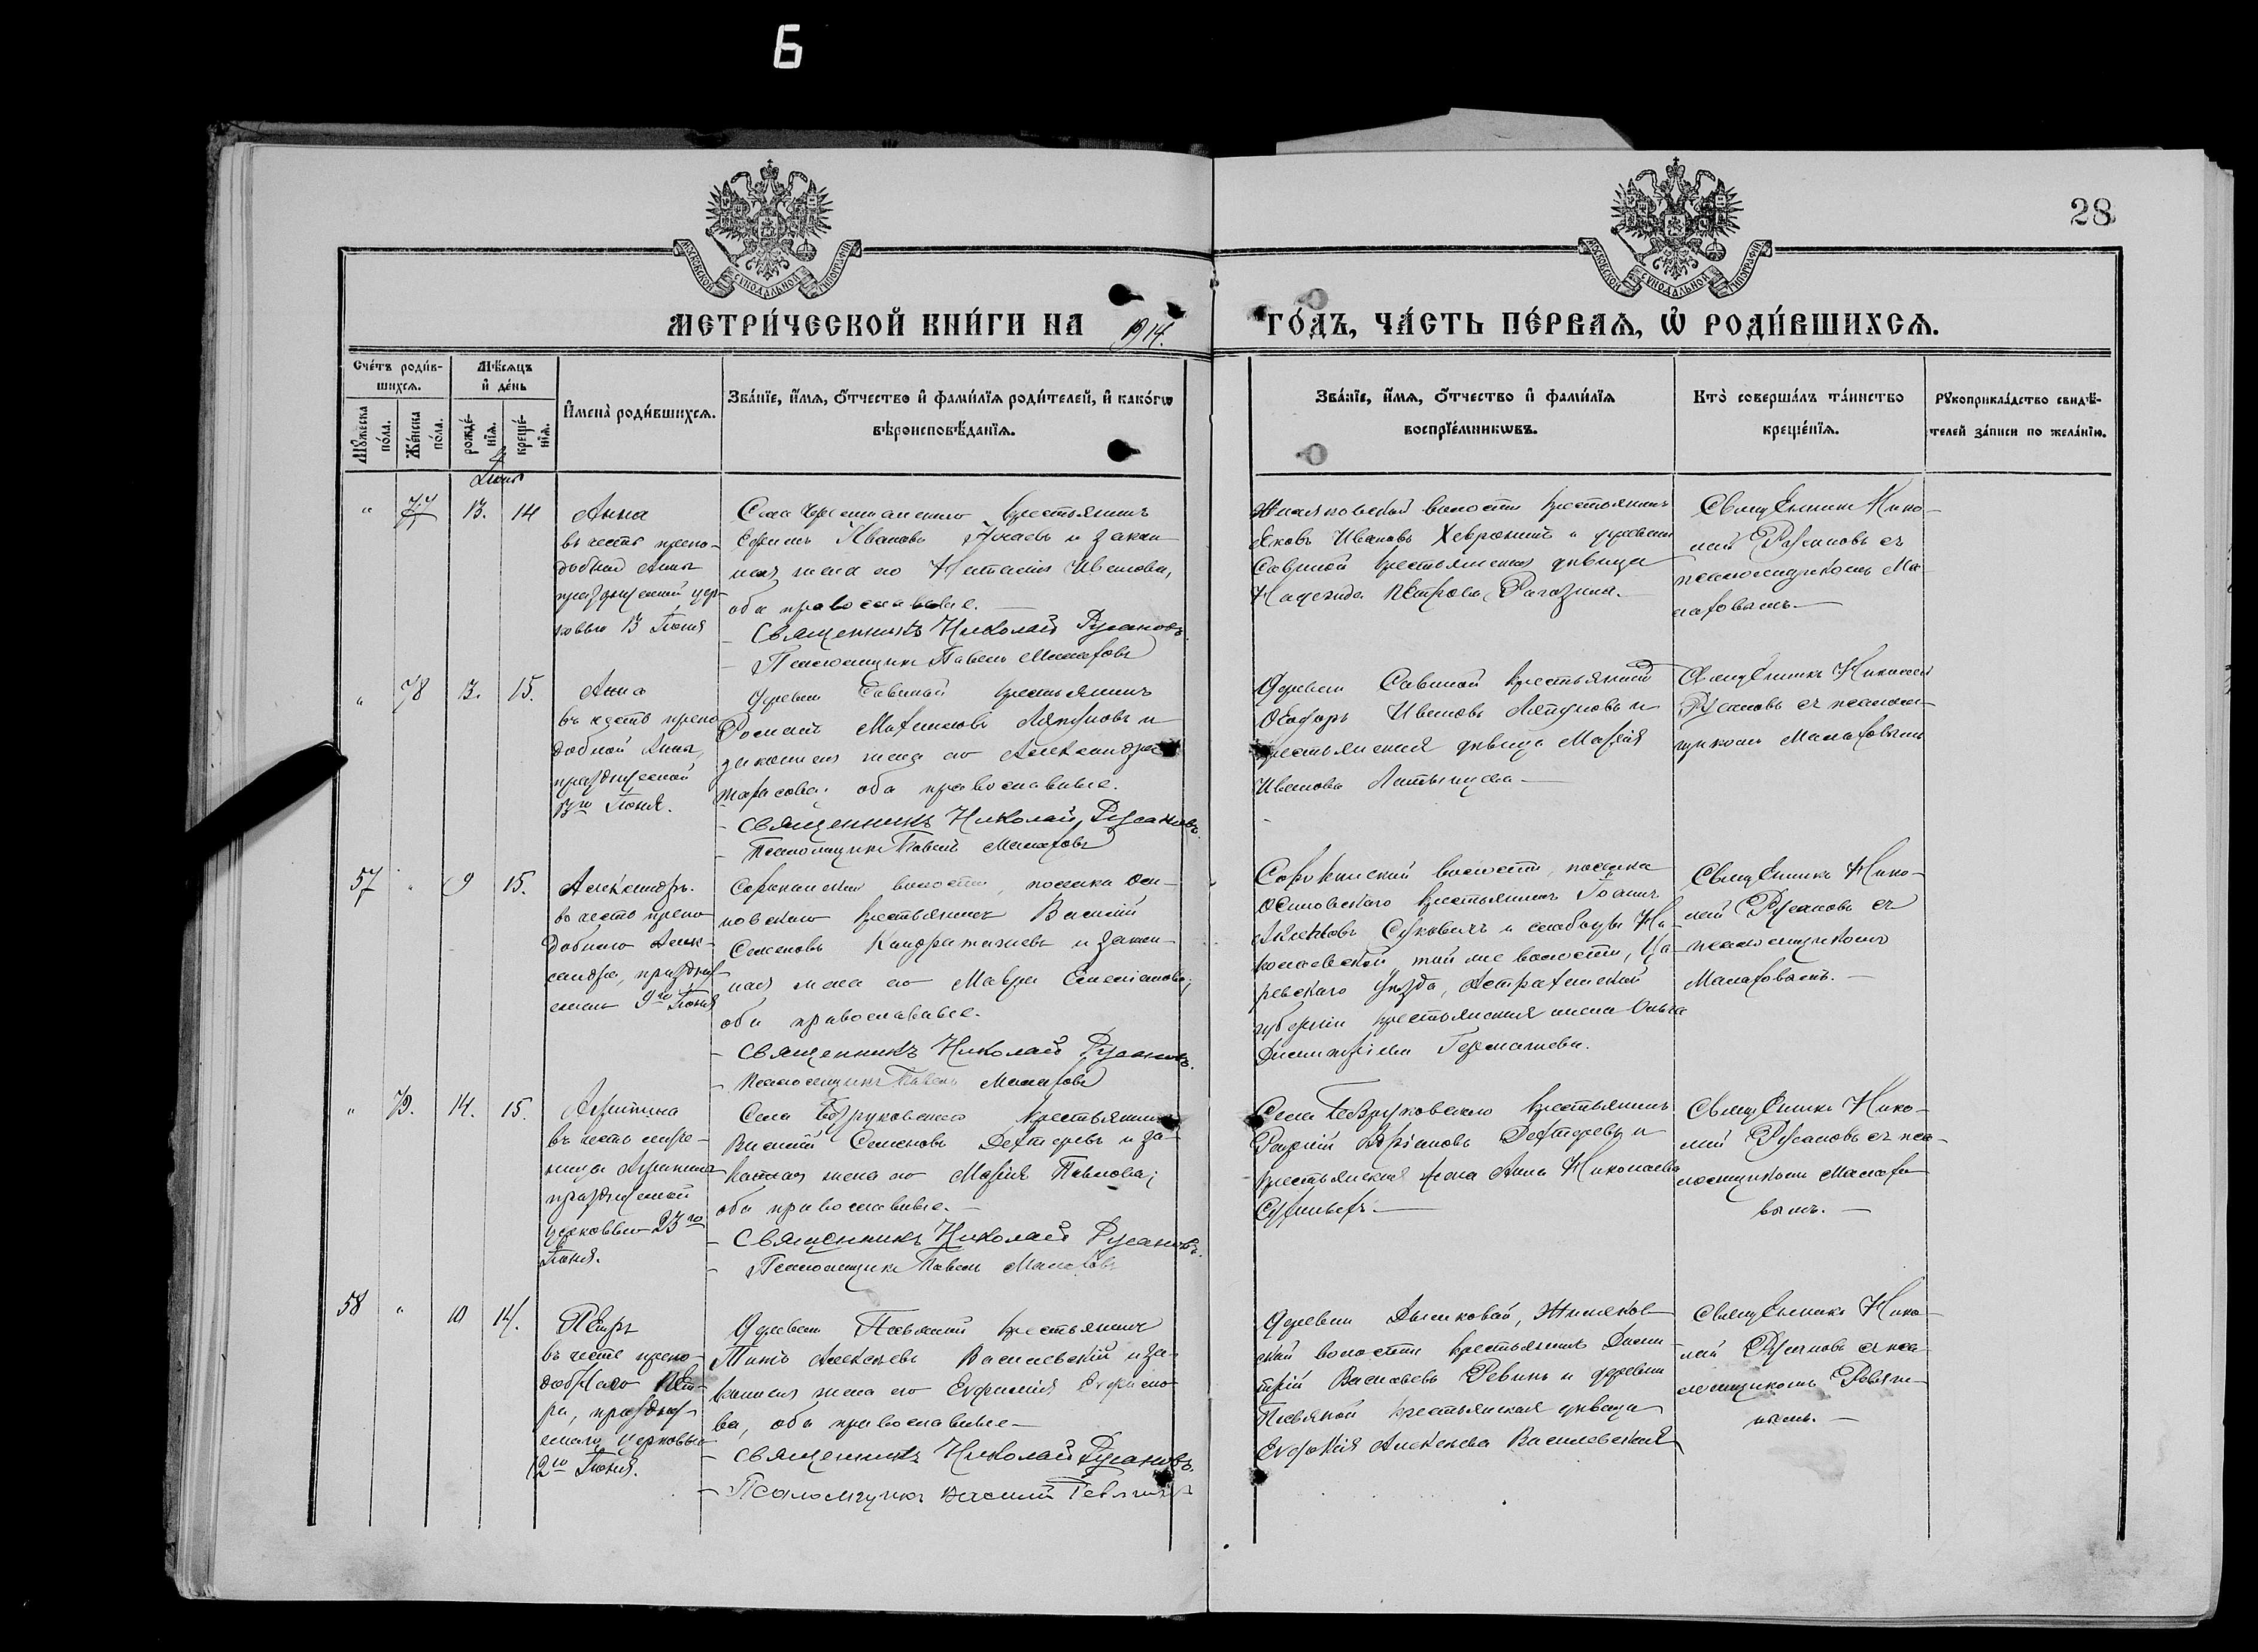 Б
28
МОСКОВСКОЙ СѴНОДАЛЬНОЙ ТИПОГРАФІИ
МОСКОВСКОЙ СѴНОДАЛЬНОЙ ТИПОГРАФІИ
МЕТРИ́ЧЕСКОЙ КНИ́ГИ НА 1914. ГО́ДЪ, ЧА́СТЬ ПЕ́РВАЯ, Ѡ҆ РОДИ́ВШИХСЯ.
Сче́тъ роди́в-
шихся.
Мѣ́сяцъ
и҆ де́нь
Мꙋ́жеска по́ла.
Же́нска по́ла.
рожде́-нїя.
креще́-нїя.
И҆мена̀ роди́вшихся.
Зва́нїе, и҆́мя, ѻ҆́тчество и҆ фами́лїя роди́телей, и҆ како́гѡ
вѣроисповѣ́данїя.
Зва́нїе, и҆́мя, ѻ҆́тчество и҆ фами́лїя
воспрїе́мникѡвъ.
Кто̀ соверша́лъ та́инство
креще́нїя.
Рꙋкоприкла́дство свидѣ́-
телей за́писи по жела́нїю.
Іюнь
" 77 13. 14 Анна
въ честь препо-
добной Анны
празднуемой цер-
ковью 13 Іюня
крестьянинъ
Ефимъ Ивановъ и закон-
ная жена его Наталія Иванова,
оба православные.
Священникъ Николай Русановъ.
Псаломщикъ Павелъ Малаховъ
волости крестьянинъ
Яковъ Ивановъ и деревни
Савиной крестьянская дѣвица
Надежда Петрова Рагозина.
Священникъ Нико-
лай Русановъ съ
псаломщикомъ Ма-
лаховымъ.
" 78 13. 15. Анна
въ честь препо
добной Анны,
празднуемой
13го Іюня.
Деревни Савиной крестьянинъ
Романъ Ляпуновъ и
законная жена его Александра
Тарасова; оба православные.
Священникъ Николай Русановъ.
Псаломщикъ Павелъ Малаховъ
Деревни Савиной крестьянинъ
Ѳеодоръ Ивановъ Ляпуновъ и
крестьянская дѣвица Марія
Иванова
Священникъ Николай
Русановъ съ псалом-
щикомъ Малаховымъ
57 " 9 15. Александръ.
въ честь препо
добнаго Алек-
сандра, праздну-
емаго 9го Іюня
волости, поселка Оси-
новскаго крестьянинъ Василій
Семеновъ и закон-
ная жена его Мавра
оба православные.
Священникъ Николай Русановъ.
Псаломщикъ Павелъ Малаховъ
волости, поселка
Осиновскаго крестьянинъ Іоаннъ
и слободы Ни-
колаевской той же волости, Ца-
ревскаго уѣзда, Астраханской
губерніи крестьянская жена Ольга
Димитріева
Священникъ Нико-
лай Русановъ съ
псаломщикомъ
Малаховымъ.
" 79. 14. 15. Агрипина
въ честь муче-
ницы Агрипины
празднуемой
церковью 23го
Іюня.
Села Безруковскаго крестьянинъ
Василій Семеновъ Дегтеревъ и за-
конная жена его Марія Павлова;
оба православные.
Священникъ Николай Русановъ.
Псаломщикъ Павелъ Малаховъ
Села Безруковскаго крестьянинъ
Дегтеревъ и
крестьянская жена Анна Николаева
Священникъ Нико-
лай Русановъ съ пса-
ломщикомъ Малахо-
вымъ.
58 " 10 14. Петръ
въ честь препо-
добнаго Пет-
ра, праздну-
емаго церковью
12го Іюня.
Деревни крестьянинъ
Титъ Алексѣевъ Василевскій и за-
конная жена его Евфимія
ва, оба православные
Священникъ Николай Русановъ.
Псаломщикъ Василій
Деревни
ской волости крестьянинъ Дими-
трій Васильевъ Ревинъ и деревни
крестьянская дѣвица
Евдокія Алексѣева Василевская
Священникъ Нико-
лай Русановъ съ пса-
ломщикомъ